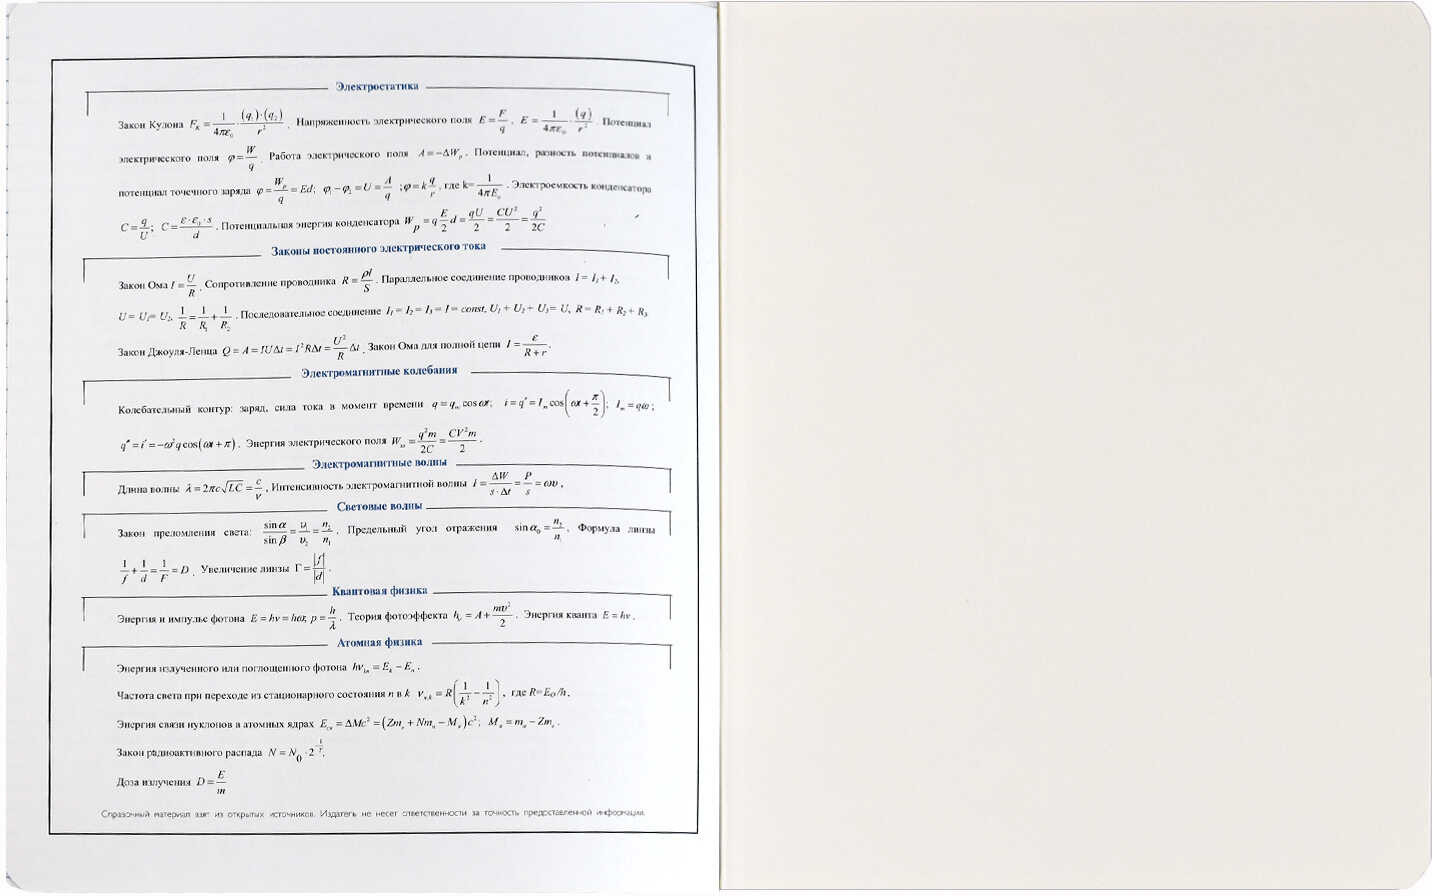 Электростатика
Закон Кулона F_K = 1/4πε₀ · (q₁)·(q₂)/r² . Напряженность электрического поля E = F/q , E = 1/4πε₀ · (q)/r² . Потенциал
электрического поля φ = W/q . Работа электрического поля A = −ΔW_p . Потенциал, разность потенциалов и
потенциал точечного заряда φ = W_p/q = Ed; φ₁ − φ₂ = U = A/q ; φ = k q/r , где k= 1/4πE₀ . Электроемкость конденсатора
C = q/U ; C = ε·ε₀·s/d . Потенциальная энергия конденсатора W_p = q E/2 d = qU/2 = CU²/2 = q²/2C
Законы постоянного электрического тока
Закон Ома I = U/R . Сопротивление проводника R = ρl/S . Параллельное соединение проводников I = I₁ + I₂,
U = U₁= U₂, 1/R = 1/R₁ + 1/R₂ . Последовательное соединение I₁ = I₂ = I₃ = I = const, U₁ + U₂ + U₃ = U, R = R₁ + R₂ + R₃
Закон Джоуля-Ленца Q = A = IUΔt = I²RΔt = U²/R Δt . Закон Ома для полной цепи I = ε/R + r .
Электромагнитные колебания
Колебательный контур: заряд, сила тока в момент времени q = q_m cos ωt; i = q' = I_m cos(ωt + π/2); I_m = qω;
q'' = i' = −ω²q cos(ωt + π) . Энергия электрического поля W = q²m/2C = CV²m/2 .
Электромагнитные волны
Длина волны λ = 2πc√LC = c/ν , Интенсивность электромагнитной волны I = ΔW/s·Δt = P/s = ωυ ,
Световые волны
Закон преломления света: sin α/sin β = υ₁/υ₂ = n₂/n₁ . Предельный угол отражения sin α₀ = n₂/n₁ . Формула линзы
1/f + 1/d = 1/F = D . Увеличение линзы Г = |f|/|d| .
Квантовая физика
Энергия и импульс фотона E = hν = hω; p = h/λ . Теория фотоэффекта h_ν = A + mυ²/2 . Энергия кванта E = hν .
Атомная физика
Энергия излученного или поглощенного фотона hν_kn = E_k − E_n .
Частота света при переходе из стационарного состояния n в k ν_n,k = R(1/k² − 1/n²) , где R=E₀/h .
Энергия связи нуклонов в атомных ядрах E_св = ΔMc² = (Zm_p + Nm_n − M_я)c² ; M_я = m_a − Zm_e .
Закон радиоактивного распада N = N₀ · 2^(−t/T).
Доза излучения D = E/m
Справочный материал взят из открытых источников. Издатель не несет ответственности за точность предоставленной информации.